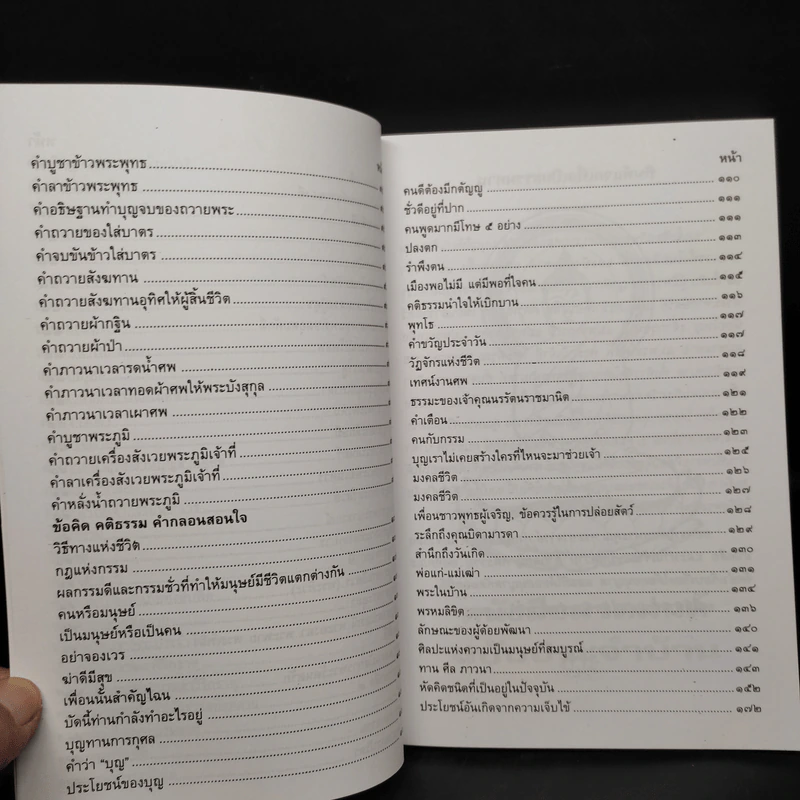 คำบูชาข้าวพระพุทธ
คำลาข้าวพระพุทธ
คำอธิษฐานทำบุญจบของถวายพระ
คำถวายของใส่บาตร
คำจบขันข้าวใส่บาตร
คำถวายสังฆทาน
คำถวายสังฆทานอุทิศให้ผู้สิ้นชีวิต
คำถวายผ้ากฐิน
คำถวายผ้าป่า
คำภาวนาเวลารดน้ำศพ
คำภาวนาเวลาทอดผ้าศพให้พระบังสุกุล
คำภาวนาเวลาเผาศพ
คำบูชาพระภูมิ
คำถวายเครื่องสังเวยพระภูมิเจ้าที่
คำลาเครื่องสังเวยพระภูมิเจ้าที่
คำหลั่งน้ำถวายพระภูมิ
ข้อคิด คติธรรม คำกลอนสอนใจ
วิธีทางแห่งชีวิต
กฎแห่งกรรม
ผลกรรมดีและกรรมชั่วที่ทำให้มนุษย์มีชีวิตแตกต่างกัน
คนหรือมนุษย์
เป็นมนุษย์หรือเป็นคน
อย่าจองเวร
ฆ่าดีมีสุข
เพื่อนนั้นสำคัญไฉน
บัดนี้ท่านกำลังทำอะไรอยู่
บุญทานการกุศล
คำว่า "บุญ"
ประโยชน์ของบุญ
หน้า
คนดีต้องมีกตัญญู ๑๑๐
ชั่วดีอยู่ที่ปาก ๑๑๑
คนพูดมากมีโทษ ๕ อย่าง ๑๑๑
ปลงตก ๑๑๓
รำพึงตน ๑๑๔
เมืองพอไม่มี แต่มีพอที่ใจคน ๑๑๕
คติธรรมนำใจให้เบิกบาน ๑๑๖
พุทโธ ๑๑๗
คำขวัญประจำวัน ๑๑๗
วัฏจักรแห่งชีวิต ๑๑๘
เทศน์งานศพ ๑๑๙
ธรรมะของเจ้าคุณนรรัตนราชมานิต ๑๒๑
คำเตือน ๑๒๒
คนกับกรรม ๑๒๓
บุญเราไม่เคยสร้างใครที่ไหนจะมาช่วยเจ้า ๑๒๕
มงคลชีวิต ๑๒๖
มงคลชีวิต ๑๒๗
เพื่อนชาวพุทธผู้เจริญ, ข้อควรรู้ในการปล่อยสัตว์ ๑๒๘
ระลึกถึงคุณบิดามารดา ๑๒๙
สำนึกถึงวันเกิด ๑๓๐
พ่อแก่-แม่เฒ่า ๑๓๑
พระในบ้าน ๑๓๔
พรหมลิขิต ๑๓๖
ลักษณะของผู้ด้อยพัฒนา ๑๔๐
ศิลปะแห่งความเป็นมนุษย์ที่สมบูรณ์ ๑๔๑
ทาน ศีล ภาวนา ๑๔๓
หัดคิดชนิดที่เป็นอยู่ในปัจจุบัน ๑๕๒
ประโยชน์อันเกิดจากความเจ็บไข้ ๑๗๒